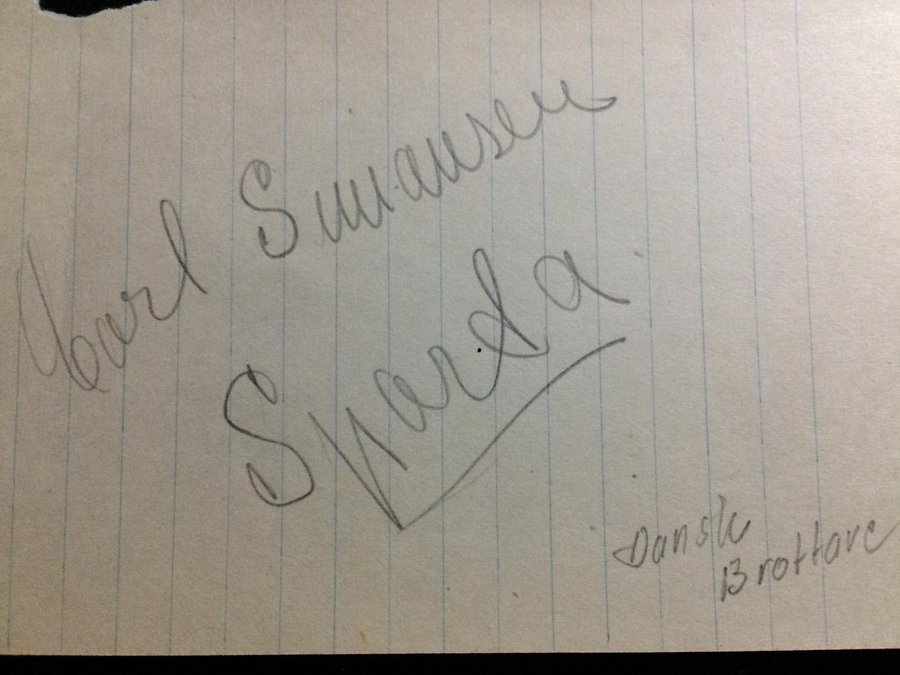 Carl Simansen
Sparta
Dansk
Brottare